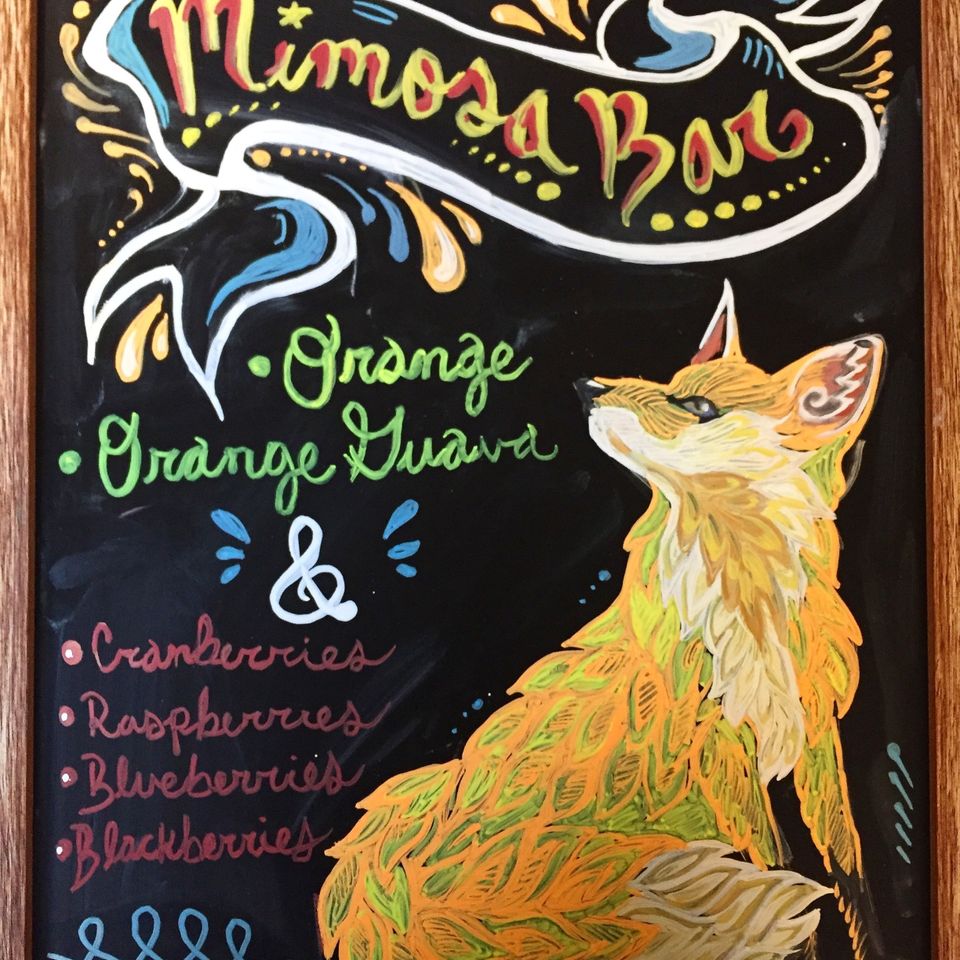 Mimosa Bar
• Orange
• Orange Guava
&
• Cranberries
• Raspberries
• Blueberries
• Blackberries